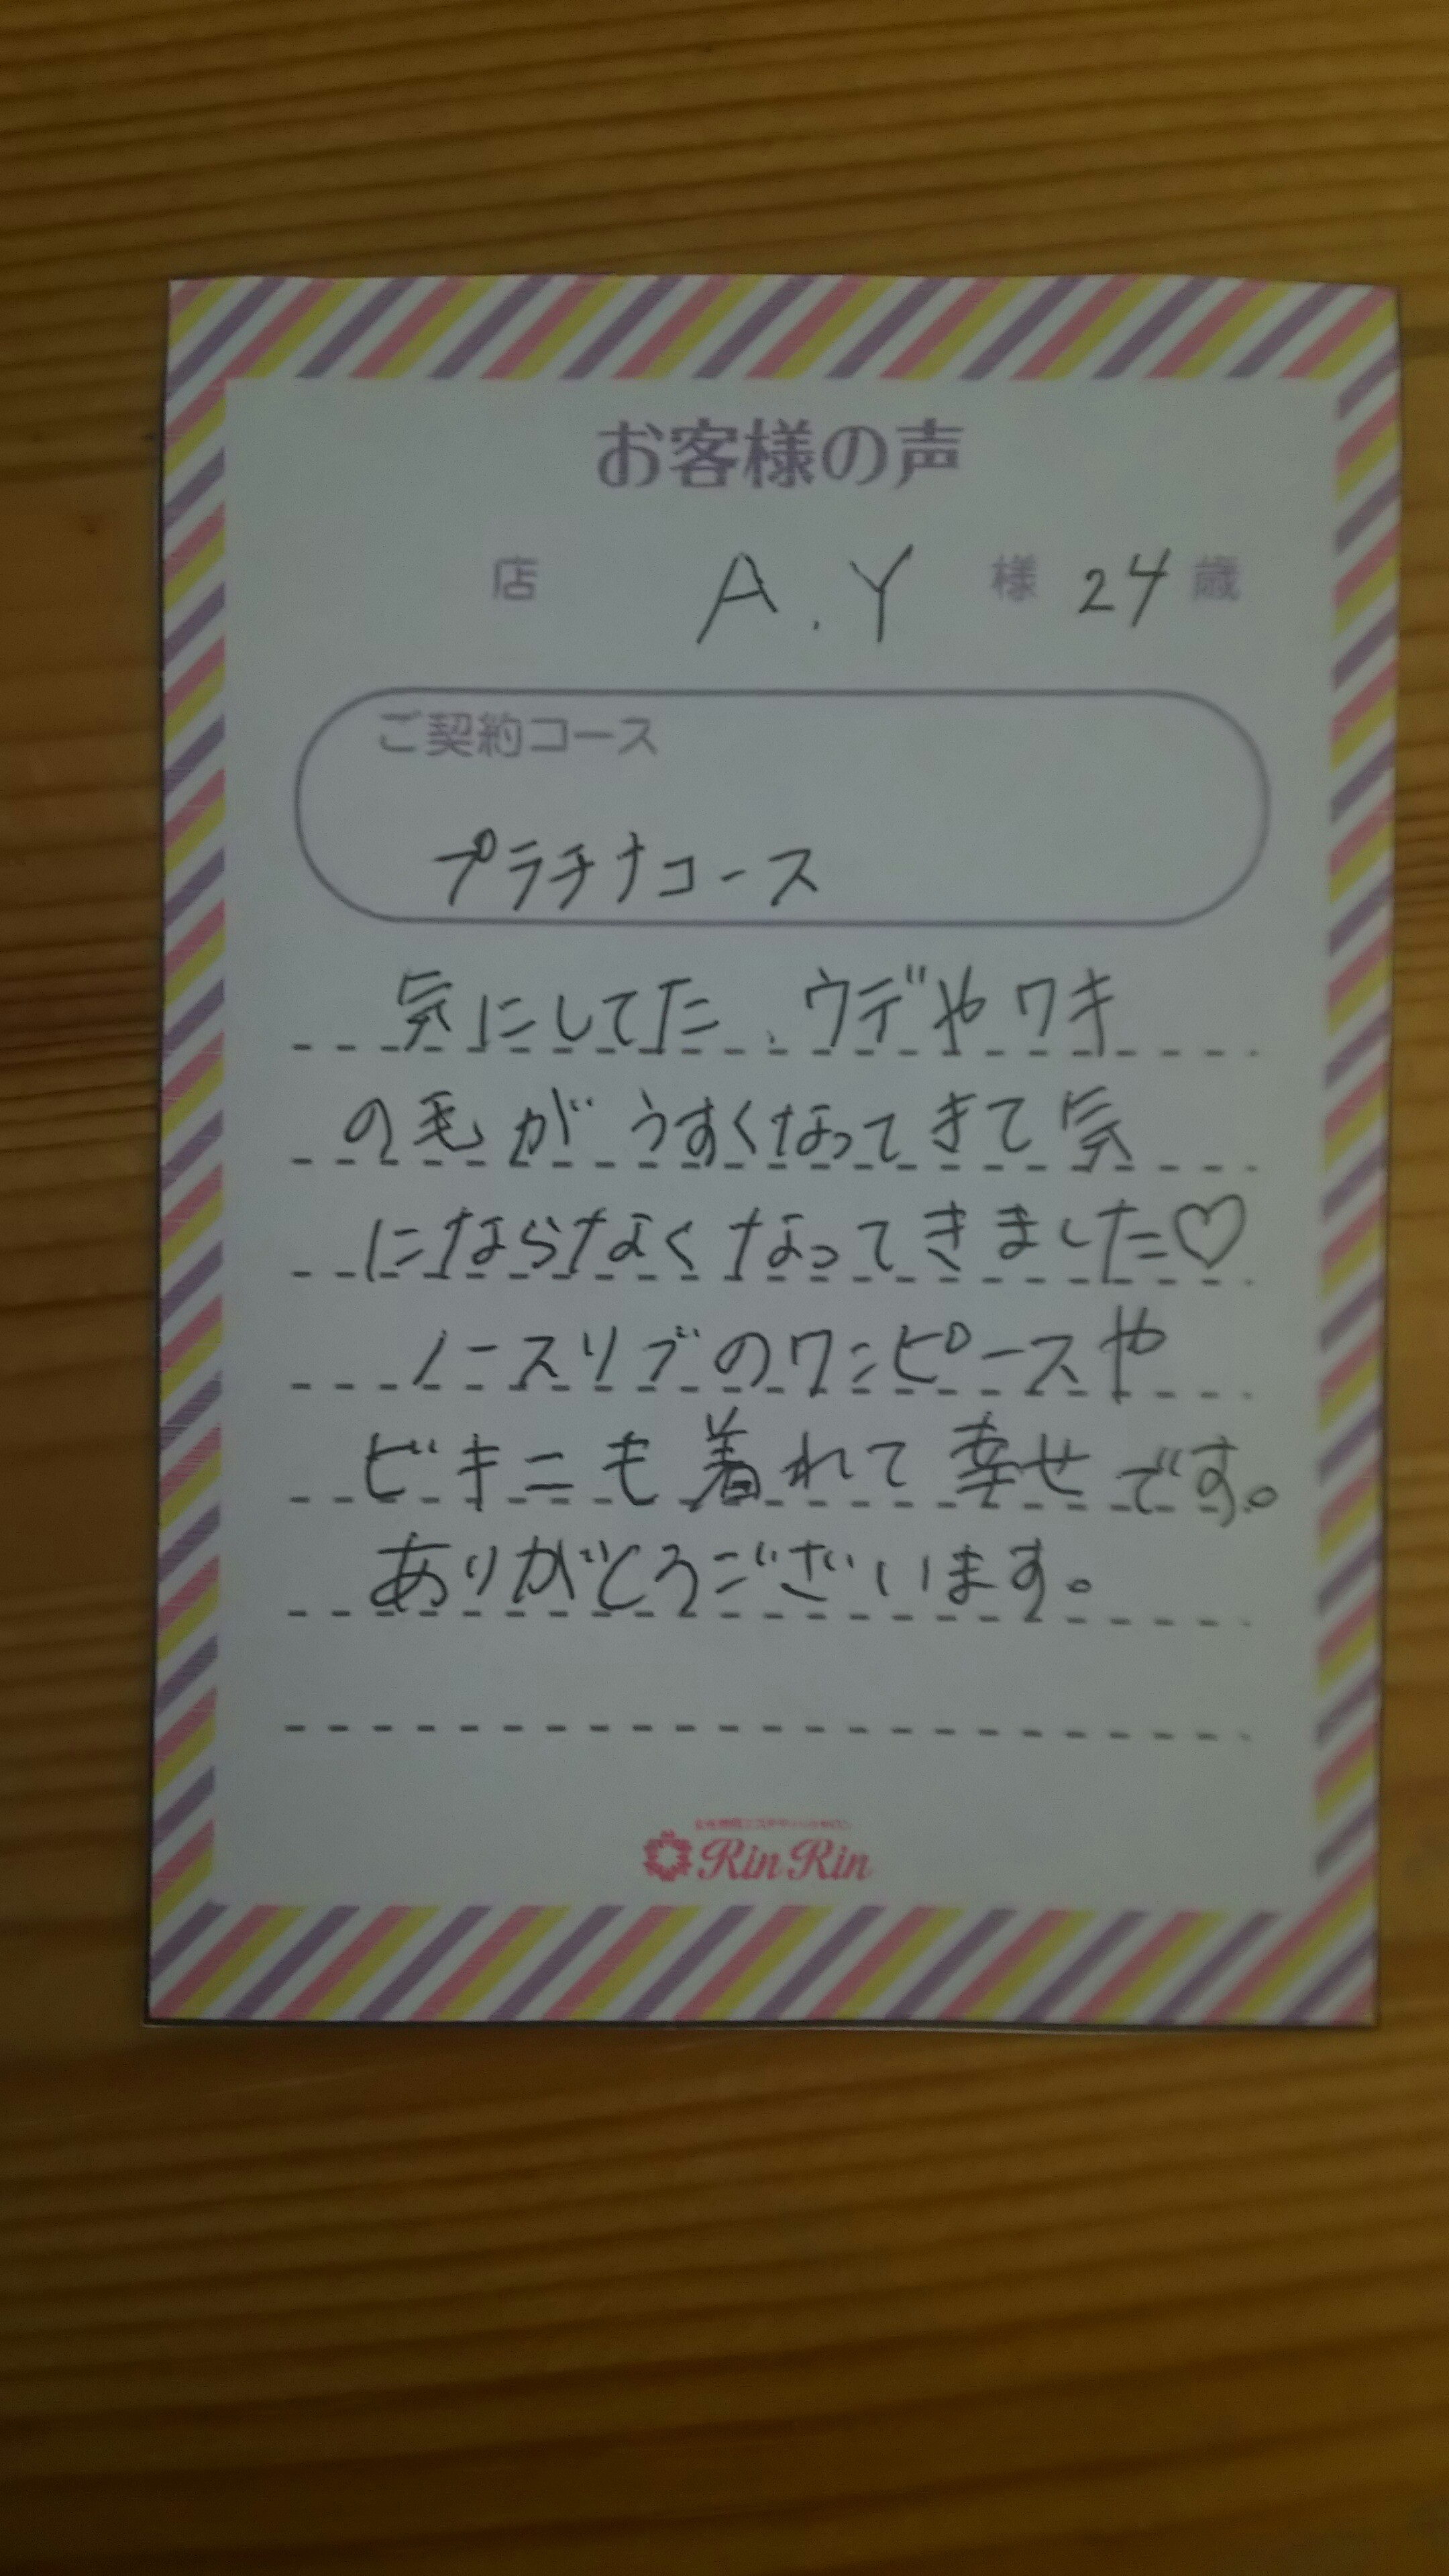 お客様の声
店 A.Y 様 24 歳
ご契約コース
プラチナコース
気にしてた、ウデやワキ
の毛がうすくなってきて気
にならなくなってきました♡
ノースリブのワンピースや
ビキニも着れて幸せです。
ありがとうございます。
Rin Rin